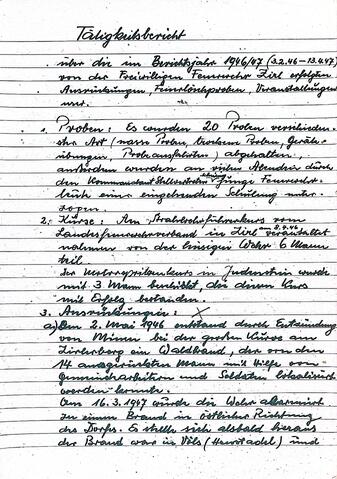 Tätigkeitsbericht
über die im Berichtsjahr 1946/47 (3.2.46-13.4.47)
von der Freiwilligen Feuerwehr Zirl erfolgten
Ausrückungen, Feuerlöschproben, Veranstaltungen
usw.
1. Proben: Es wurden 20 Proben verschieden-
ster Art (nasse Proben, trockene Proben, Geräte-
übungen, Probeausfahrten) abgehalten,
außerdem wurden an vielen Abenden durch
den Kommandant Stellvertreter junge Feuerwehr-
leute einer eingehenden Schulung unter-
zogen.
2. Kurse: Am Strahlrohrführerkurs vom
Landesfeuerwehrverband in Zirl veranstaltet
nahmen von der hiesigen Wehr 6 Mann
teil.
Der in Judenstein wurde
mit 3 Mann beschickt, die diesen Kurs
mit Erfolg bestanden.
3. Ausrückungen:
a) Am 2. Mai 1946 entstand durch Entzündung
von Minen bei der großen Kurve am
Zirlerberg ein Waldbrand, der von den
14 ausgerückten Mann mit Hilfe von
Gemeindearbeitern und Soldaten lokalisiert
werden konnte.
Am 16.3.1947 wurde die Wehr alarmiert
zu einem Brand in östlicher Richtung
des Dorfes. Es stellte sich alsbald heraus
der Brand war in Völs (Heustadel) und